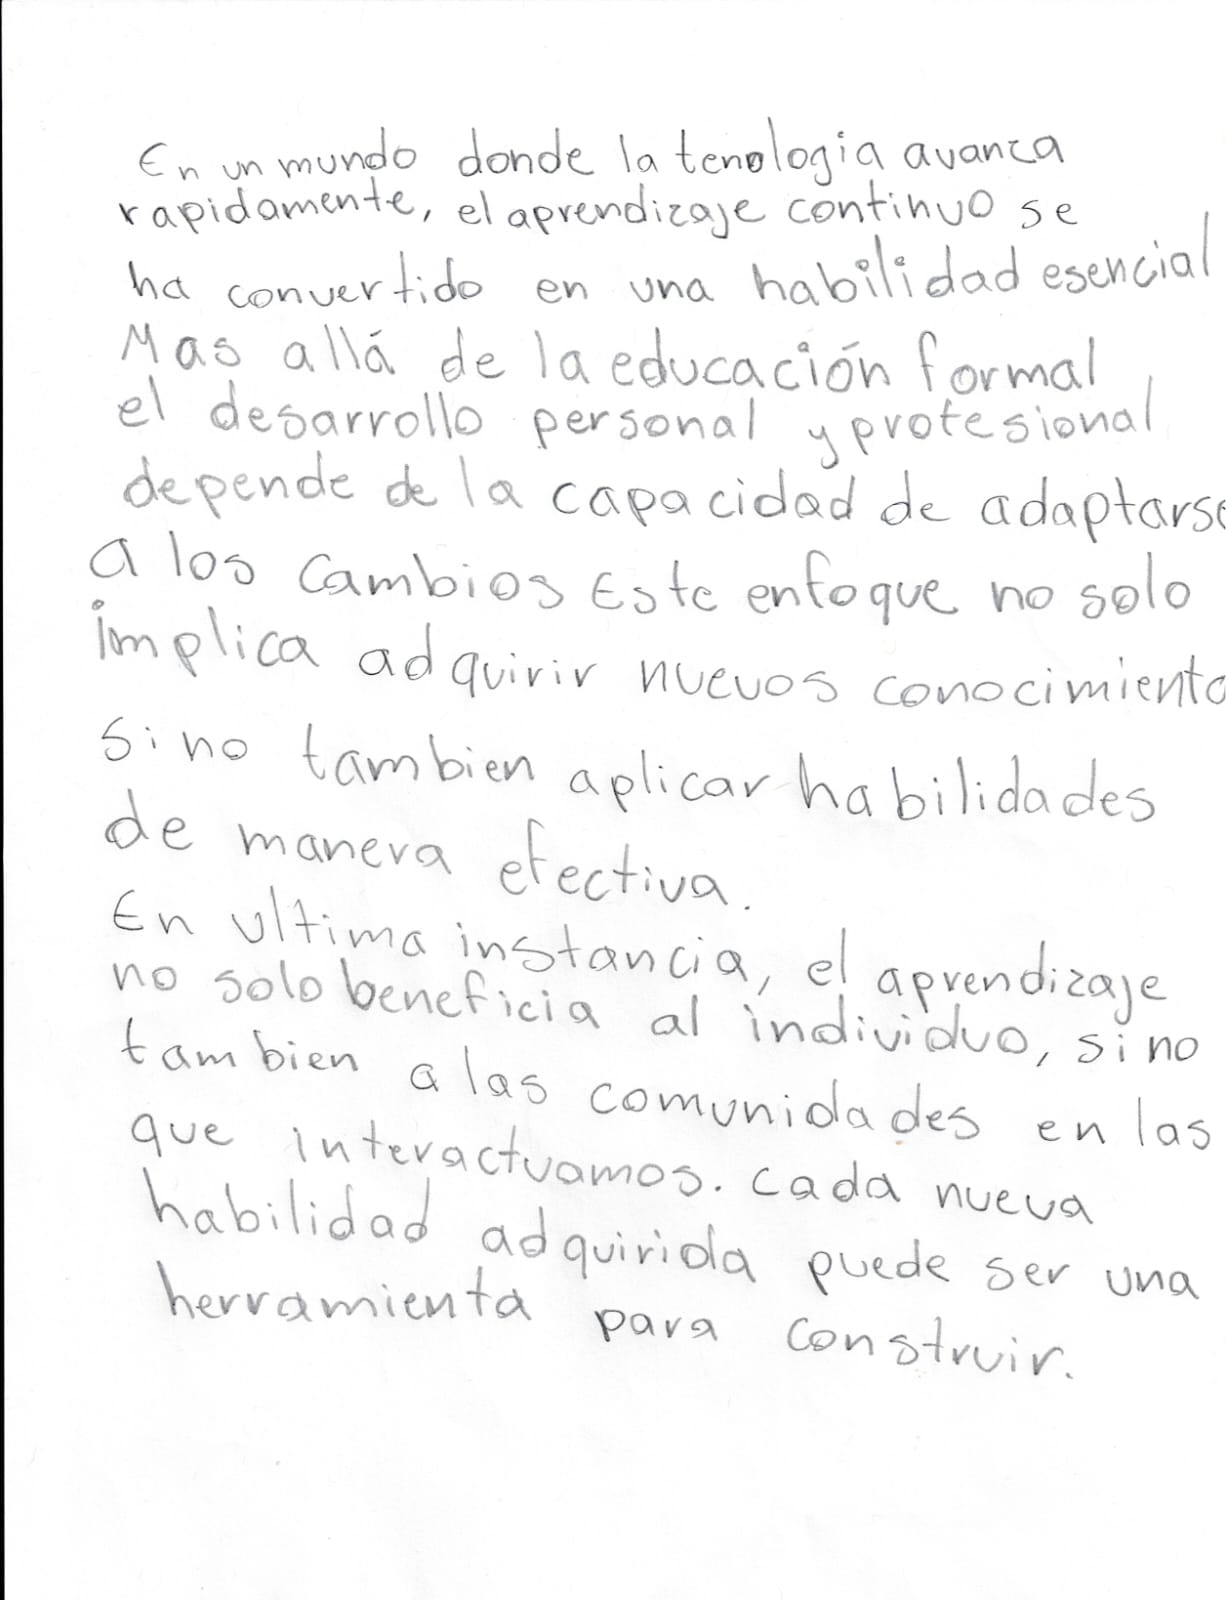 En un mundo donde la tenologia avanza
rapidamente, el aprendizaje continuo se
ha convertido en una habilidad esencial
Mas allá de la educación formal
el desarrollo personal y profesional
depende de la capacidad de adaptarse
a los cambios Este enfoque no solo
implica adquirir nuevos conocimiento
sino tambien aplicar habilidades
de manera efectiva.
En ultima instancia, el aprendizaje
no solo beneficia al individuo, sino
tambien a las comunidades en las
que interactuamos. cada nueva
habilidad adquirida puede ser una
herramienta para construir.